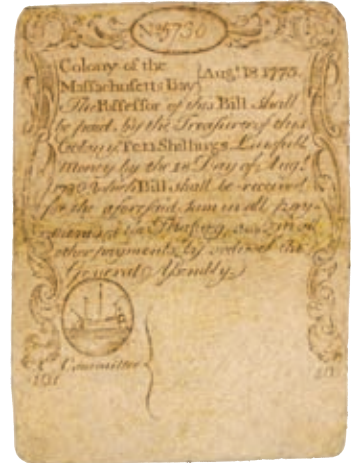 No 5730
Colony of the
Massachusetts Bay
Augt. 18 1775.
The Possessor of this Bill shall
be paid by the Treasurer of this
Colony Ten Shillings Lawfull
Money by the 18 Day of Augt.
Which Bill shall be received
for the aforesaid Sum in all pay-
at the Treasury and in
other payments by order of the
General Assembly
Committee
101